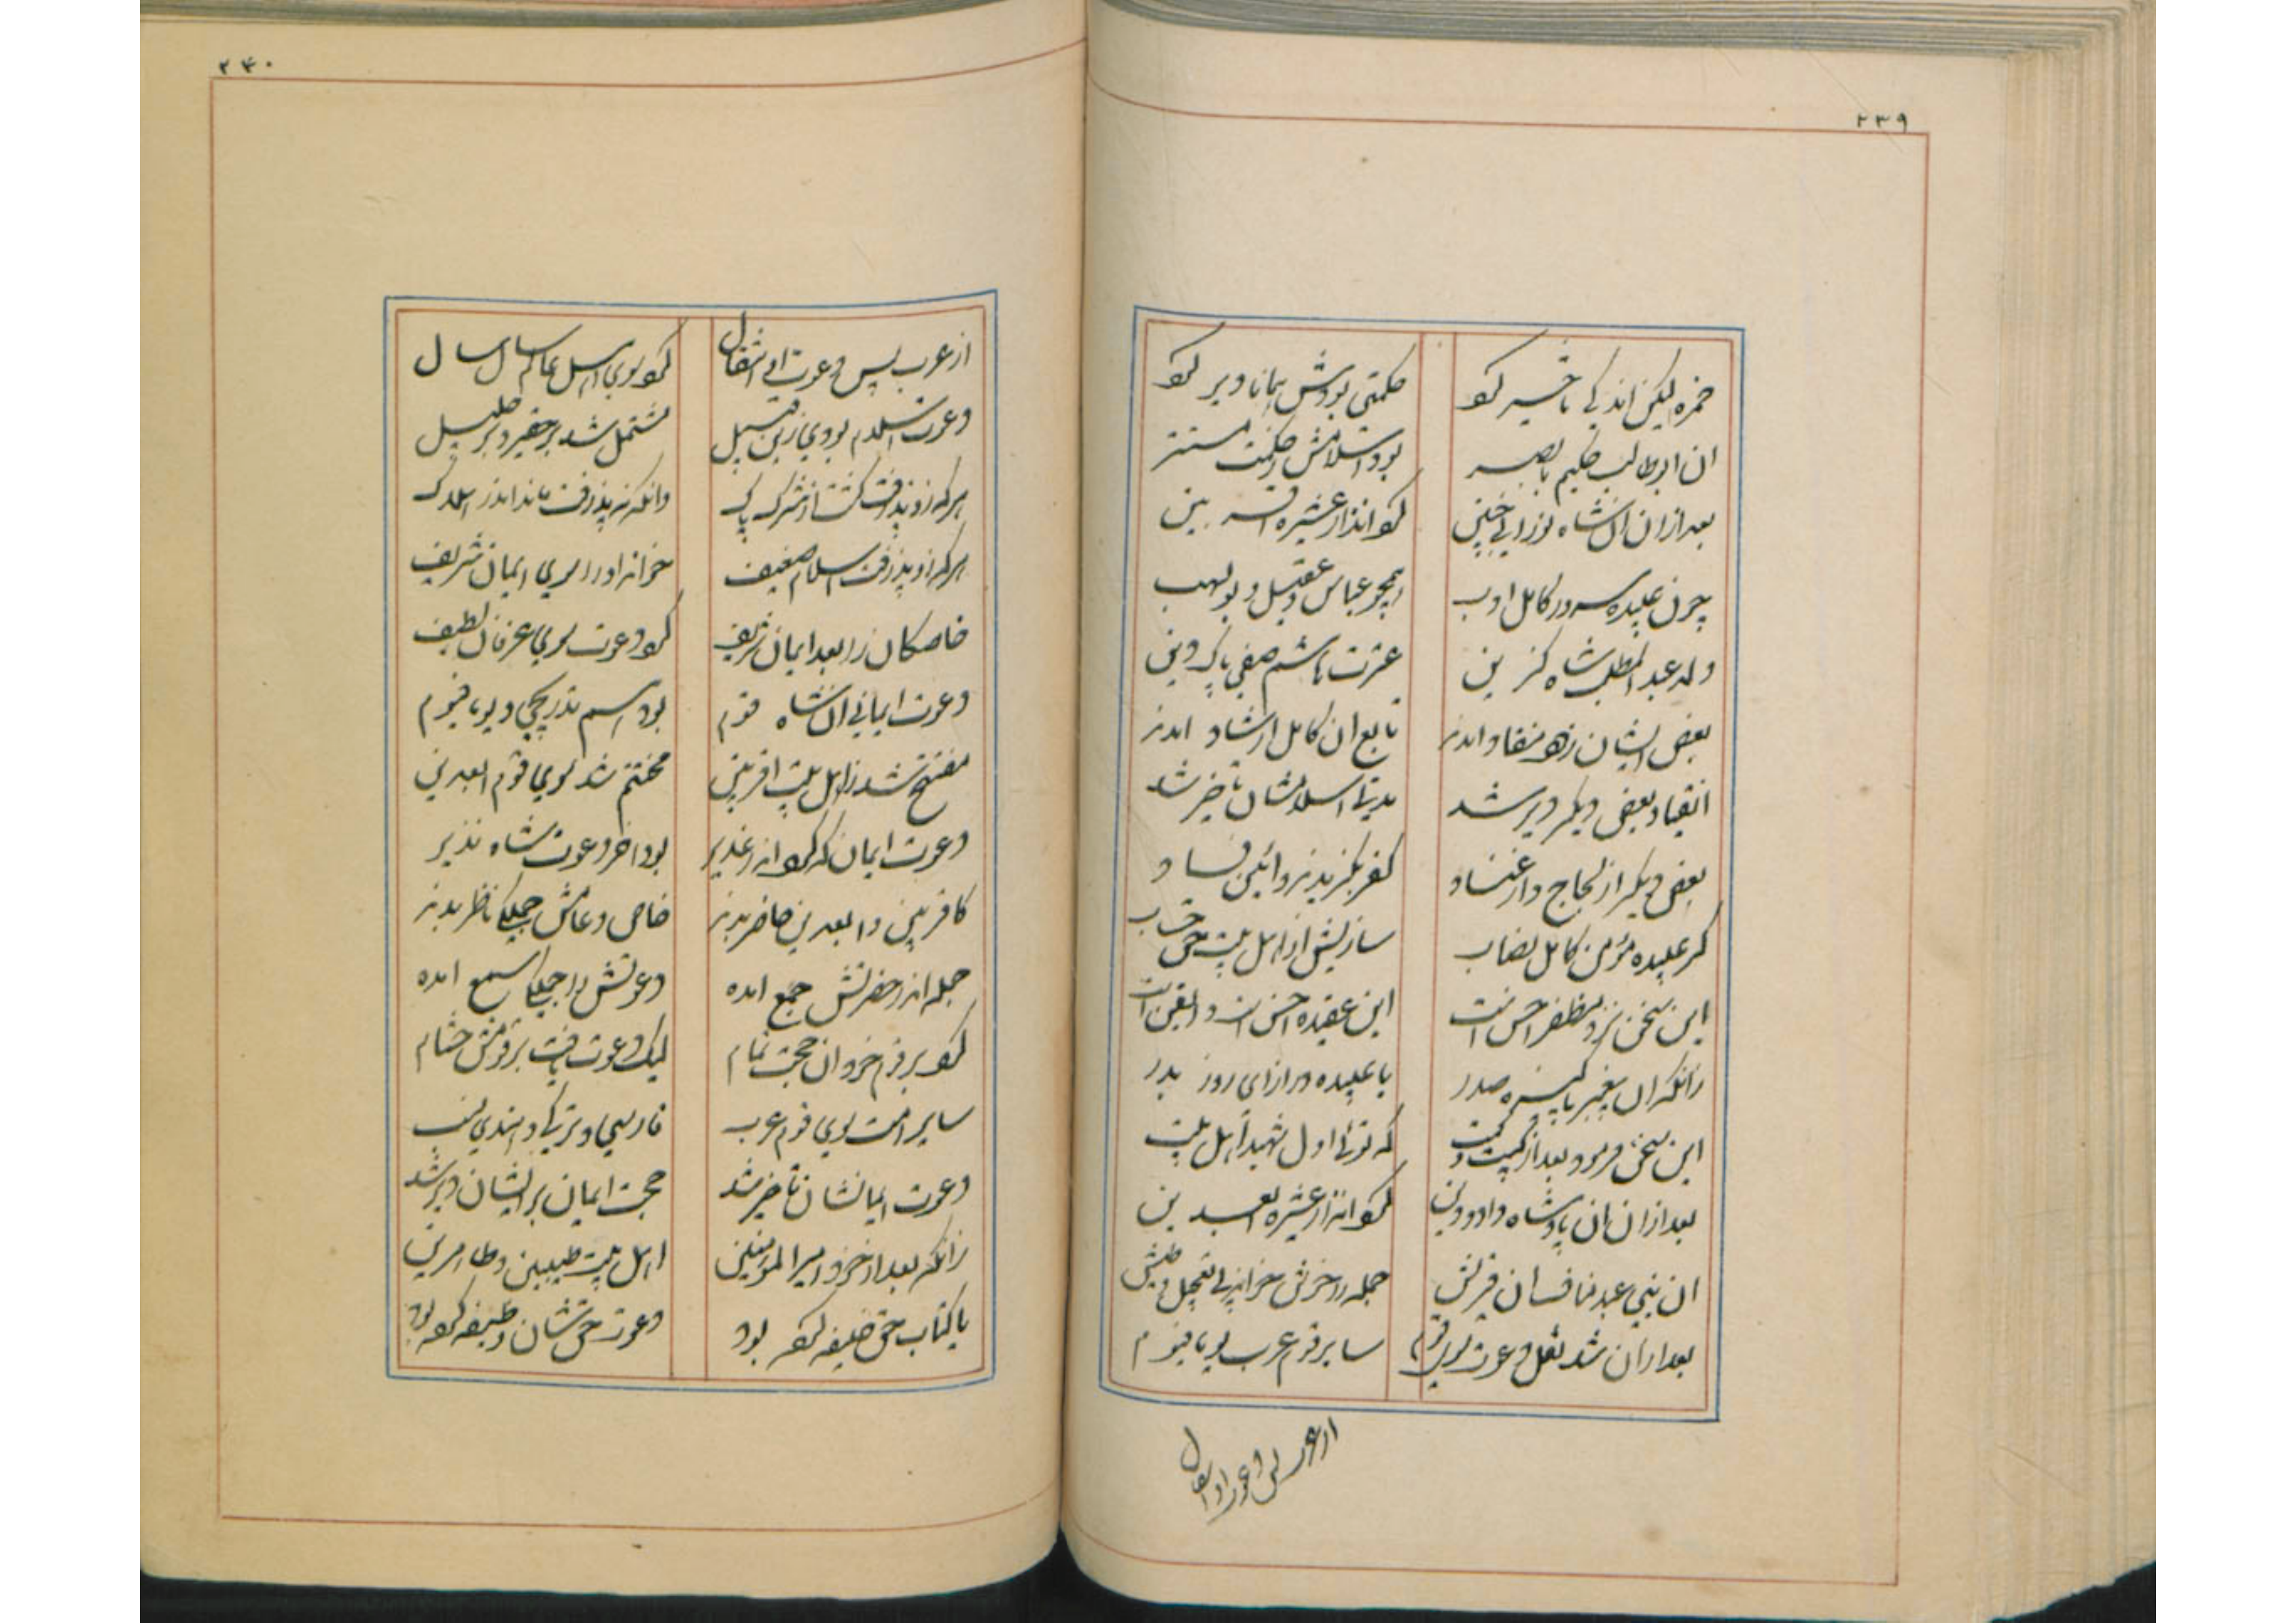 ۲۳۹
حمزه لیکن اندکی تاخیر کرد
حکمتی بودش همانا دیر کرد
ان ابوطالب حکیم با بصر
بود اسلامش ز حکمت مستتر
بعد ازان ان شاه نورانی جبین
کرد انذار عشیره اقربین
چون عبیده سرور کامل ادب
همچو عباس و عقیل و بولهب
ولد عبد المطلب شاه گزین
عترت هاشم صفی پاک دین
بعض ایشان زود منقاد امدند
تابع ان کامل ارشاد امدند
انقیاد بعض دیگر دیر شد
مدتی اسلامشان تاخیر شد
بعض دیگر از لجاج و از عناد
کفر بگزیدند و ائین فساد
گر عبیده مؤمن کامل نصاب
سازیش از اهل بیت حق حساب
این سخن نزد مظفر احسن است
این عقیده احسن است و اتقن است
زانکه ان پیغمبر پاکیزه صدر
با عبیده در ازای روز بدر
این سخن فرمود بعد از کیت و کیت
که توئی اول شهید اهل بیت
بعد ازان ان پادشاه داد و دین
کرد انذار عشیره ابعدین
ان بنی عبد منافسان قریش
جمله را حق خواند بی تعجیل و طیش
بعد ازان شد نقل دعوت سوی قوم
سایر قوم عرب یوما فیوم
از عرب پس دعوت او انتقال
۲۴۰
از عرب پس دعوت او انتقال
کرد سوی اهل عالم سال سال
دعوت اسلام بودی زین قبیل
مشتمل شد بر حقیر و بر جلیل
هر که زو پذرفت گشت از شرک پاک
وانکه نه پذرفت ماند اندر هلاک
هر که زو پذرفت اسلام ضعیف
خواند او را سوی ایمان شریف
خاصگان را بعد ایمان شریف
کرد دعوت سوی عرفان لطیف
دعوت ایمانی ان شاه قوم
بود هم تدریجی و یوما فیوم
مفتتح شد ز اهل بیت اقربین
مختتم شد سوی قوم ابعدین
دعوت ایمان که کرد اندر غدیر
بود اخر دعوت شاه نذیر
کاقربین و ابعدین حاضر بدند
خاص و عامش جملگی ناظر بدند
جمله اندر حضرتش جمع امده
دعوتش را جملگی سمع امده
کرد بر قوم خود ان حجت تمام
لیک دعوت یافت بر قومش ختام
سایر امت سوی قوم عرب
فارسی و ترکی و هندی نسب
دعوت ایمانشان تاخیر شد
حجت ایمان بر ایشان دیر شد
زانکه بعد از خود امیر المؤمنین
اهل بیت طیبین و طاهرین
با کتاب حق خلیفه کرده بود
دعوت حقشان وظیفه کرده بود